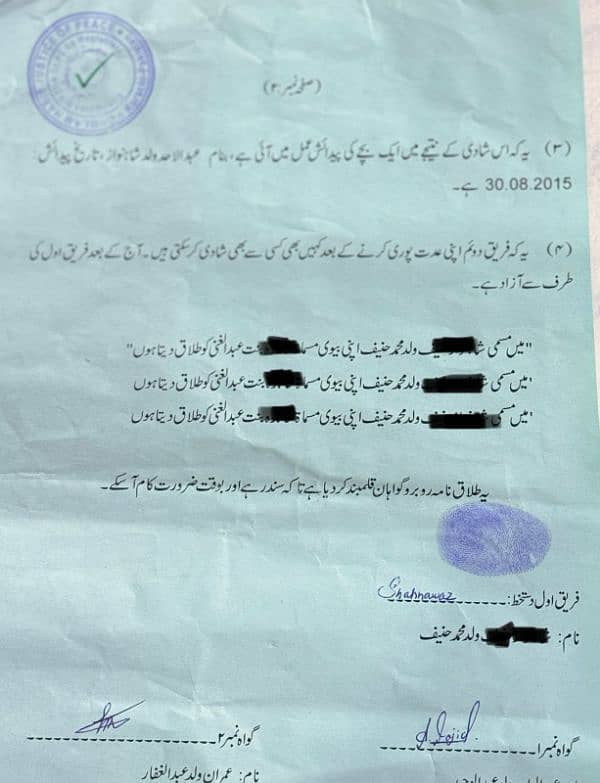 JUSTICE OF PEACE
(صفحہ نمبر:۲)
(۳) یہ کہ اس شادی کے نتیجے میں ایک بچے کی پیدائش عمل میں آئی ہے، بنام عبدالاحد ولد شاہنواز، تاریخ پیدائش:
30.08.2015 ہے۔
(۴) یہ کہ فریق دوئم اپنی عدت پوری کرنے کے بعد کہیں بھی کسی سے بھی شادی کر سکتی ہیں۔ آج کے بعد فریق اول کی
طرف سے آزاد ہے۔
"میں مسمی ولد محمد حنیف اپنی بیوی مسماۃ بنت عبدالغنی کو طلاق دیتا ہوں"
"میں مسمی ولد محمد حنیف اپنی بیوی مسماۃ بنت عبدالغنی کو طلاق دیتا ہوں
"میں مسمی ولد محمد حنیف اپنی بیوی مسماۃ بنت عبدالغنی کو طلاق دیتا ہوں
یہ طلاق نامہ روبرو گواہان قلمبند کر دیا ہے تاکہ سند رہے اور بوقت ضرورت کام آسکے۔
فریق اول دستخط: Shahnawaz
نام: ولد محمد حنیف
گواہ نمبر۱
گواہ نمبر۲
نام: عمران ولد عبدالغفار